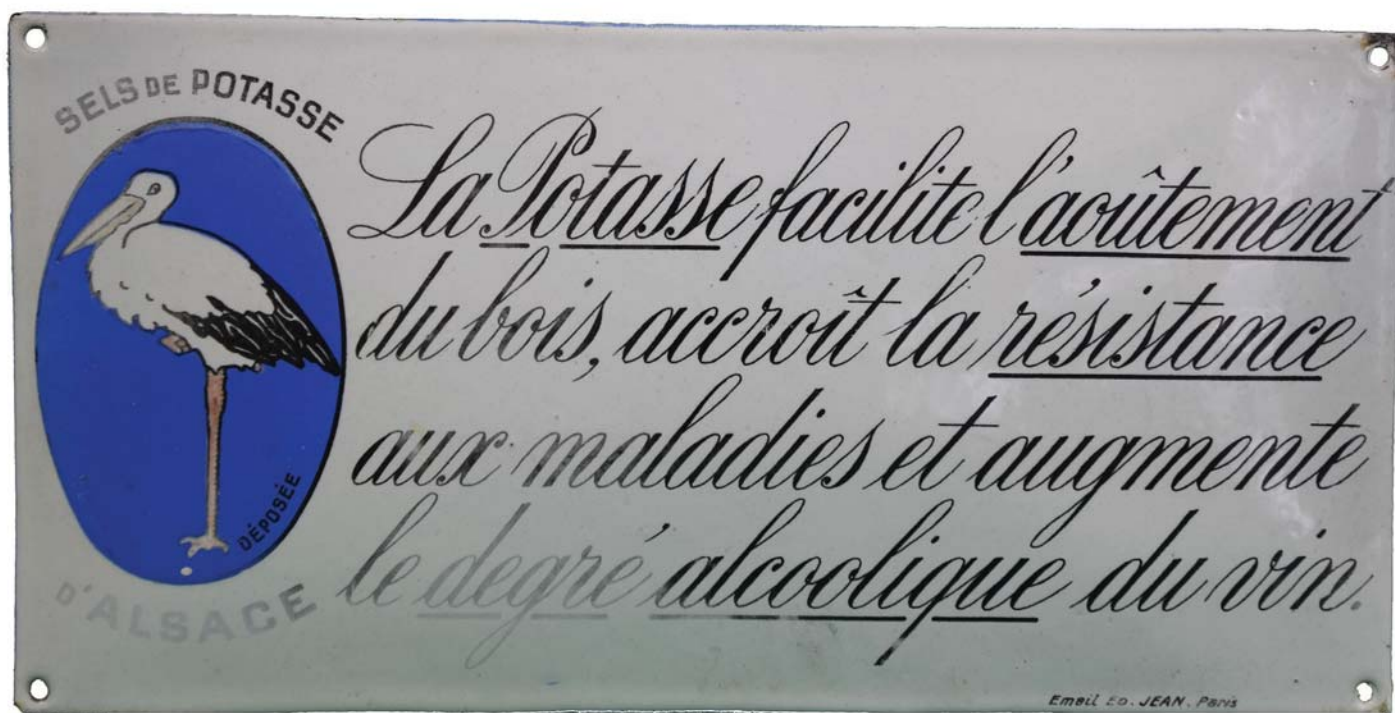 SELS DE POTASSE
DÉPOSÉE
D'ALSACE
La Potasse facilite l'aoûtement
du bois, accroît la résistance
aux maladies et augmente
le degré alcoolique du vin.
Email Ed. JEAN. Paris